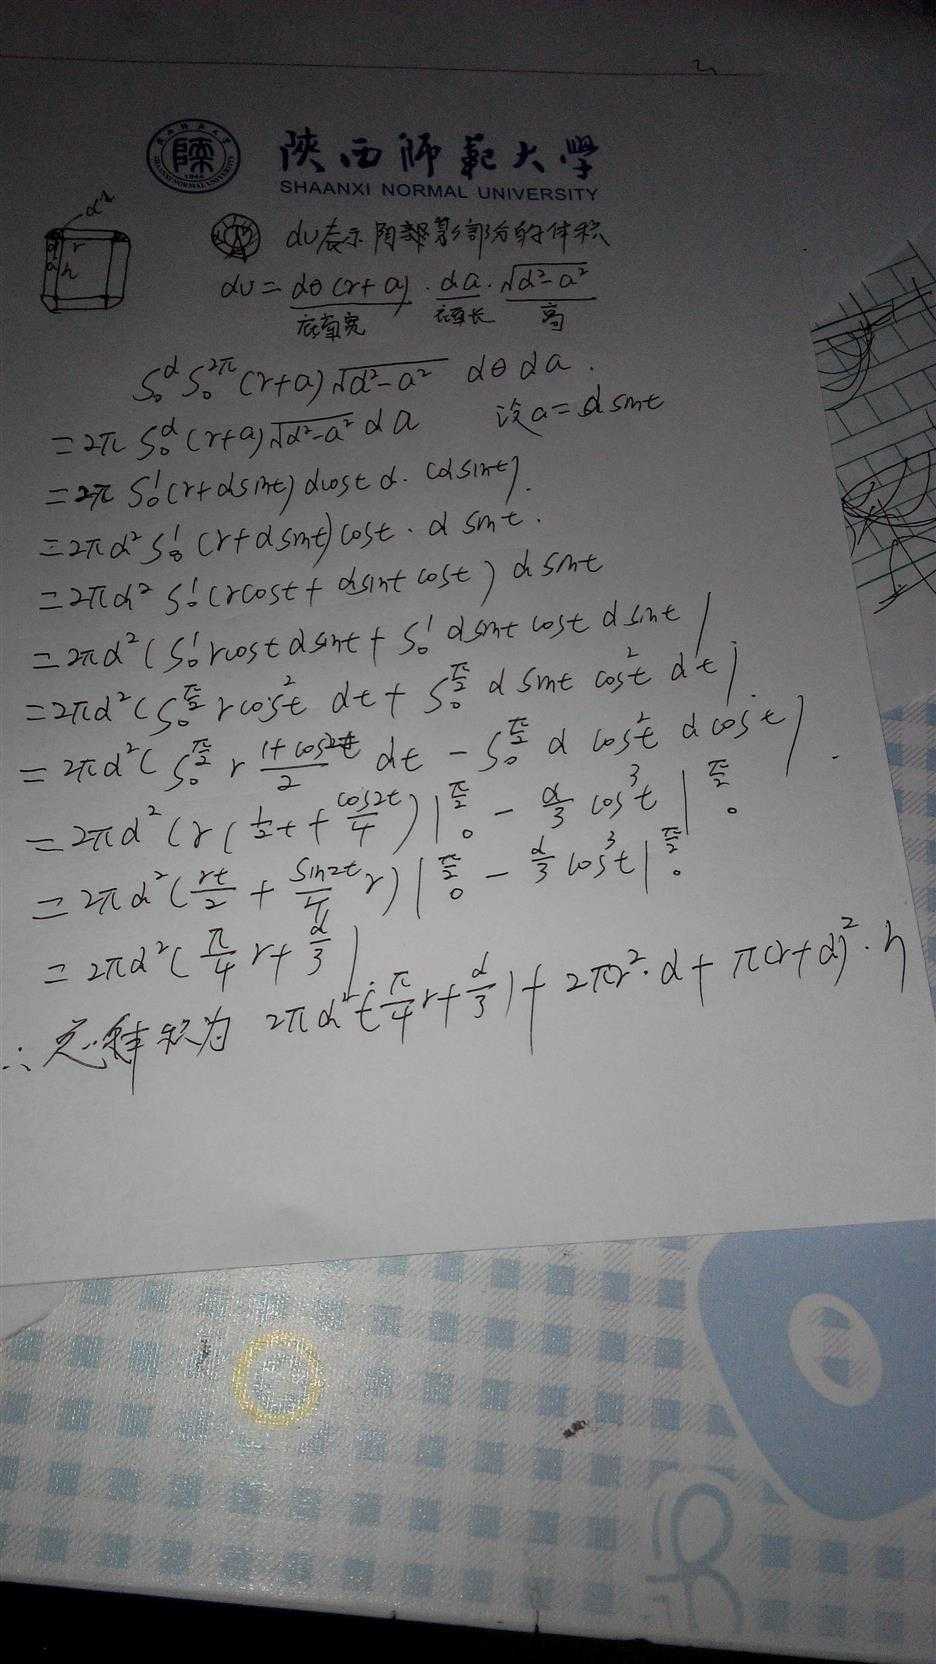 陝西師範大學
SHAANXI NORMAL UNIVERSITY
dv表示阴影部分的体积
dv = dθ(r+a)·da·√d²-a²
底面宽 底面长 高
∫₀ᵈ∫₀^2π (r+a)√d²-a² dθda.
=2π∫₀ᵈ(r+a)√d²-a² da 设a=dsint
=2π∫₀¹(r+dsint)dcost d·(dsint)
=2πd²∫₀¹(r+dsint)cost·dsint.
=2πd²∫₀¹(rcost+dsintcost)dsint
=2πd²(∫₀¹rcostdsint+∫₀¹dsintcostdsint)
=2πd²(∫₀^π/2 rcos²t dt+∫₀^π/2 dsintcos²t dt)
=2πd²(∫₀^π/2 r 1+cos2t/2 dt-∫₀^π/2 dcos²t dcost)
=2πd²(r(1/2t+cos2t/4)|₀^π/2 - d/3cos³t|₀^π/2
=2πd²(rt/2+sin2t/4r)|₀^π/2 - d/3cos³t|₀^π/2
=2πd²(π/4r+d/3)
∴总体积为 2πd²(π/4r+d/3)+2πr²·d+π(r+d)²·h